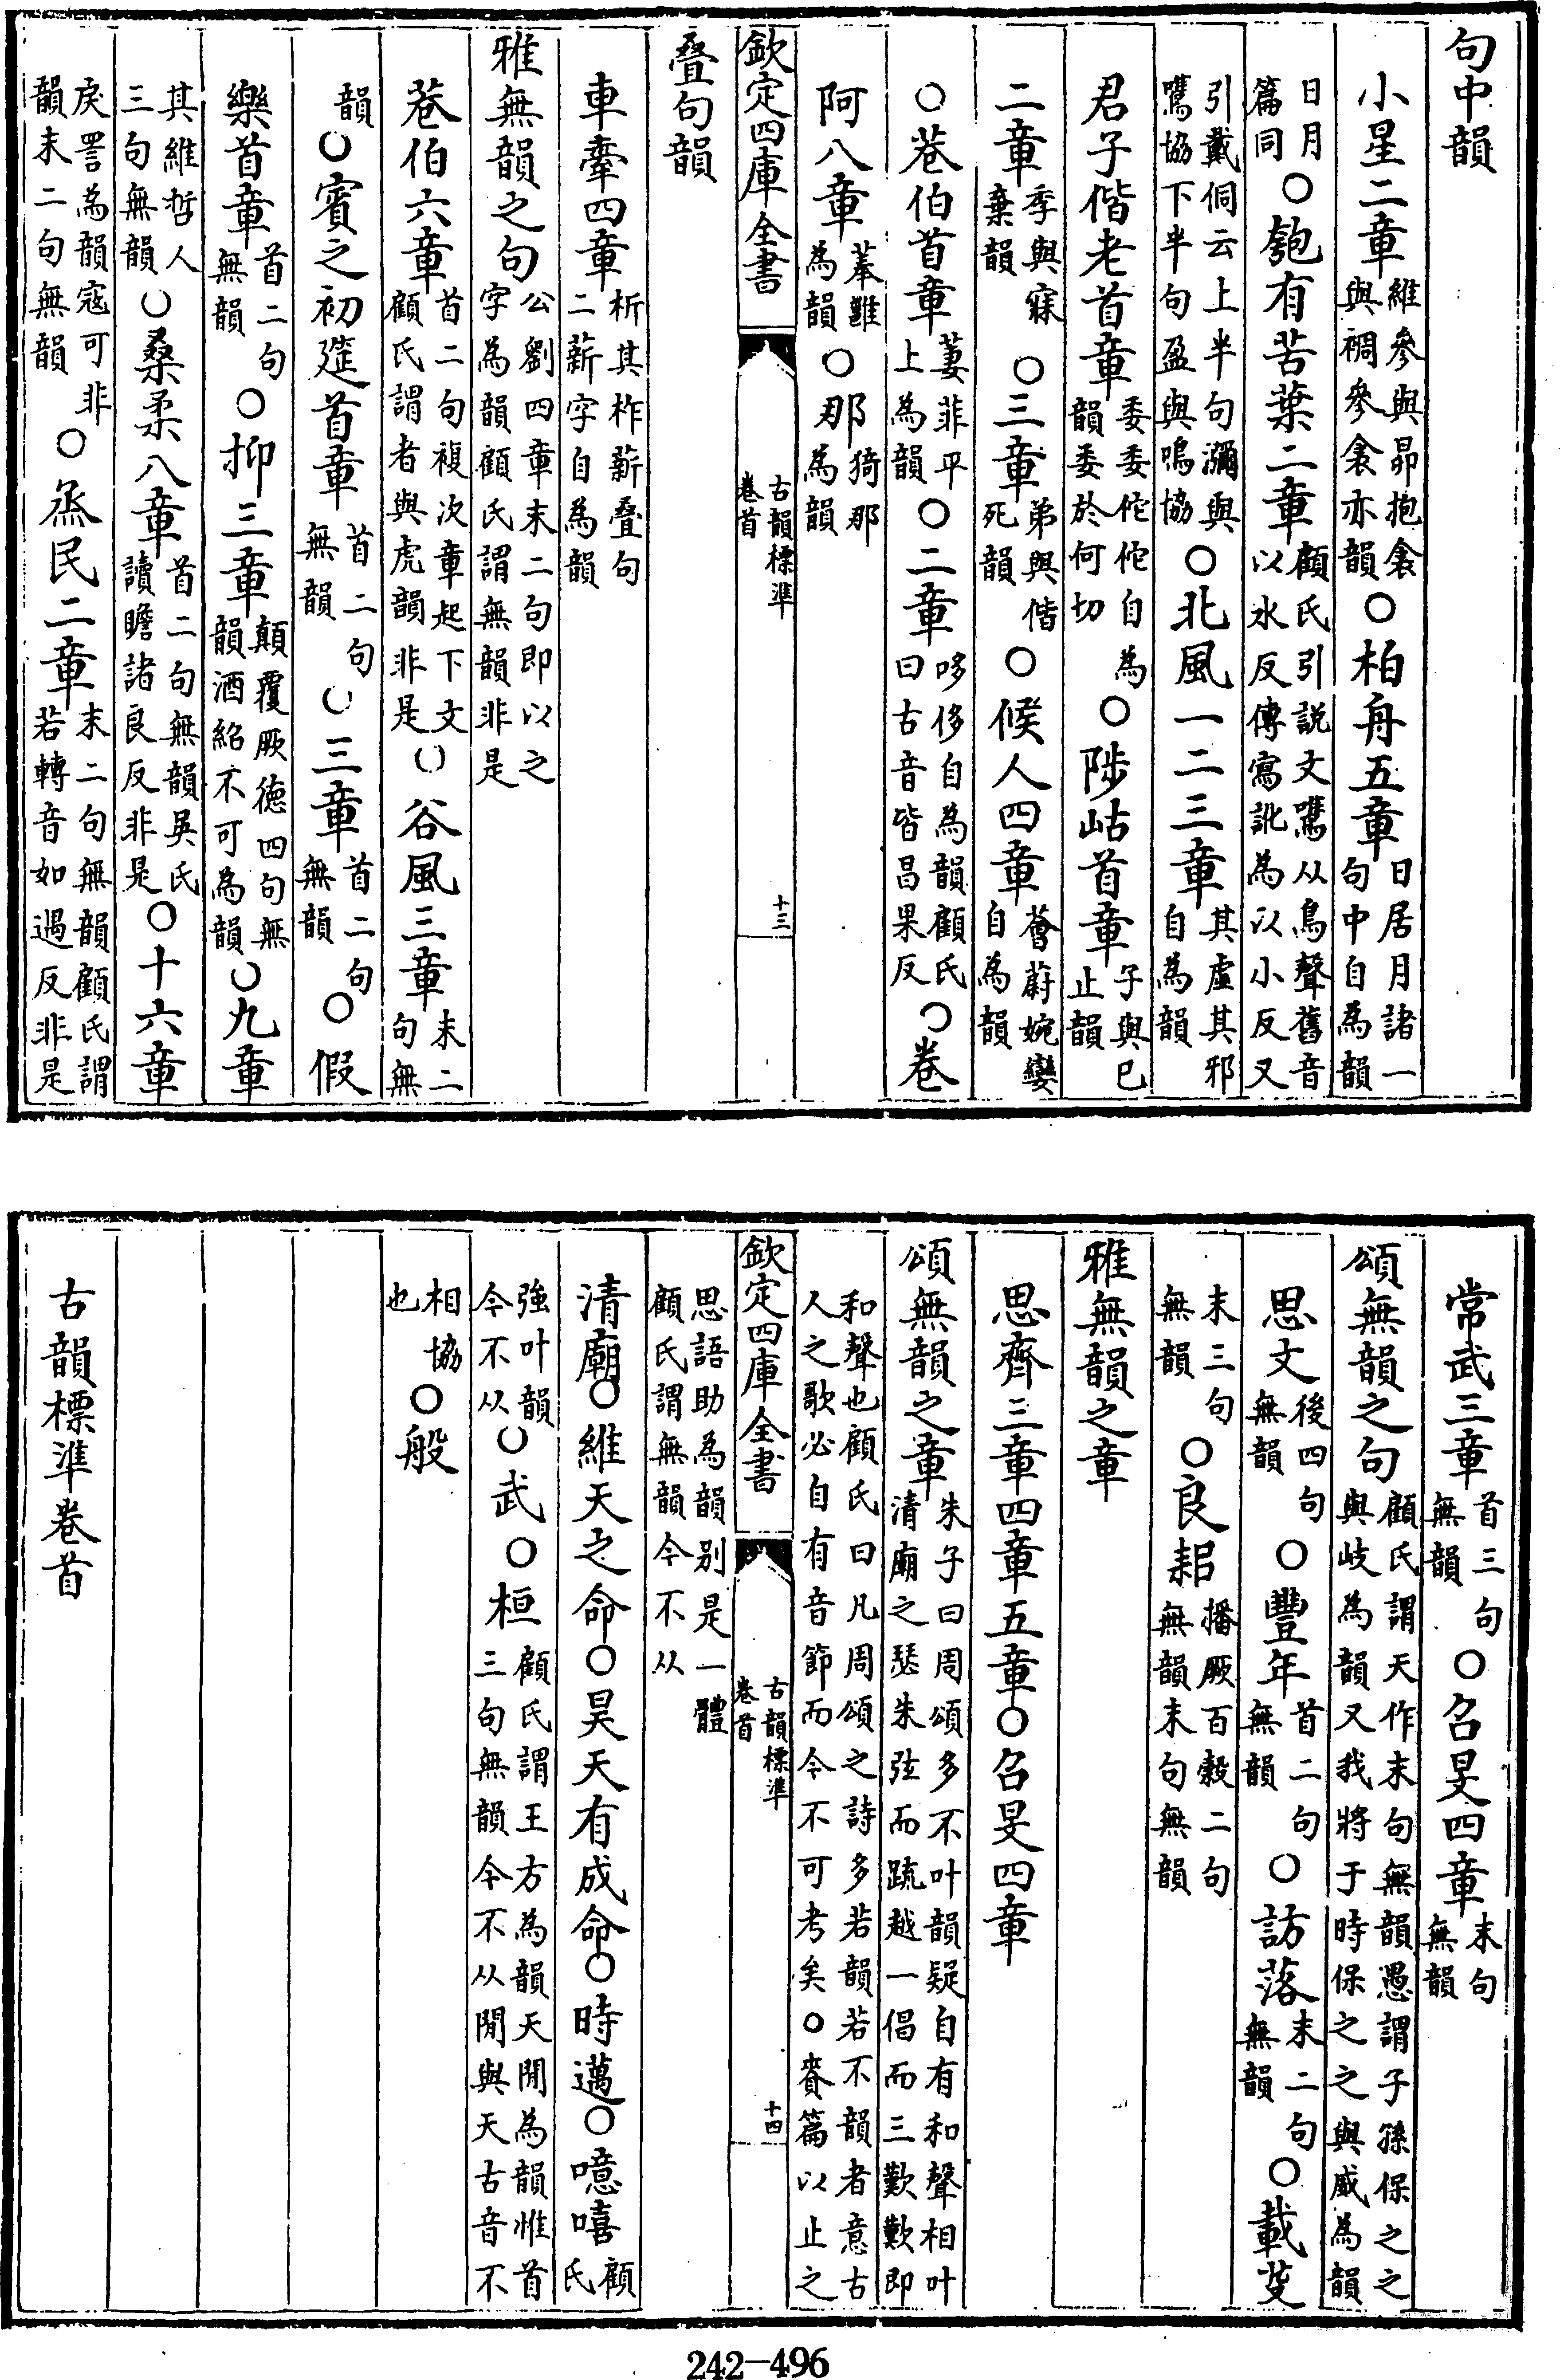 句中韻
小星二章維參與昴抱衾與裯參衾亦韻〇柏舟五章日居月諸一句中自為韻
日月篇同〇匏有苦葉二章顧氏引説文鷕从鳥聲舊音以水反傳寫訛為以小反又
引戴侗云上半句瀰與鷕協下半句盈與鳴協〇北風一二三章其虛其邪自為韻
君子偕老首章委委佗佗自為韻委於何切〇陟岵首章子與已止韻
二章季與寐棄韻〇三章弟與偕死韻〇候人四章薈蔚婉孌自為韻
〇巷伯首章萋菲平上為韻〇二章哆侈自為韻顧氏曰古音皆昌果反〇卷
阿八章菶雝為韻〇那猗那為韻
欽定四庫全書
古韻標準卷首
十三
疊句韻
車舝四章析其柞薪疊句二薪字自為韻
雅無韻之句公劉四章末二句即以之字為韻顧氏謂無韻非是
巷伯六章首二句複次章起下文顧氏謂者與虎韻非是〇谷風三章末二句無
韻〇賓之初筵首章首二句無韻〇三章首二句無韻〇假
樂首章首二句無韻〇抑三章顛覆厥德四句無韻酒紹不可為韻〇九章
其維哲人三句無韻〇桑柔八章首二句無韻吳氏讀瞻諸良反非是〇十六章
戾詈為韻寇可非韻末二句無韻〇烝民二章末二句無韻顧氏謂若轉音如遇反非是
常武三章首三句無韻〇召旻四章末句無韻
頌無韻之句顧氏謂天作末句無韻愚謂子孫保之之與岐為韻又我將于時保之之與威為韻
思文後四句無韻〇豐年首二句無韻〇訪落末二句無韻〇載芟
末三句無韻〇良耜播厥百穀二句無韻末句無韻
雅無韻之章
思齊三章四章五章〇召旻四章
頌無韻之章朱子曰周頌多不叶韻疑自有和聲相叶清廟之瑟朱弦而疏越一倡而三歎歎即
和聲也顧氏曰凡周頌之詩多若韻若不韻者意古人之歌必自有音節而今不可考矣〇賚篇以止之
欽定四庫全書
古韻標準卷首
十四
思語助為韻别是一體顧氏謂無韻今不从
清廟〇維天之命〇昊天有成命〇時邁〇噫嘻顧氏
強叶韻今不从〇武〇桓顧氏謂王方為韻天閒為韻惟首三句無韻今不从閒與天古音不
相協也〇般
古韻標準卷首
242-496